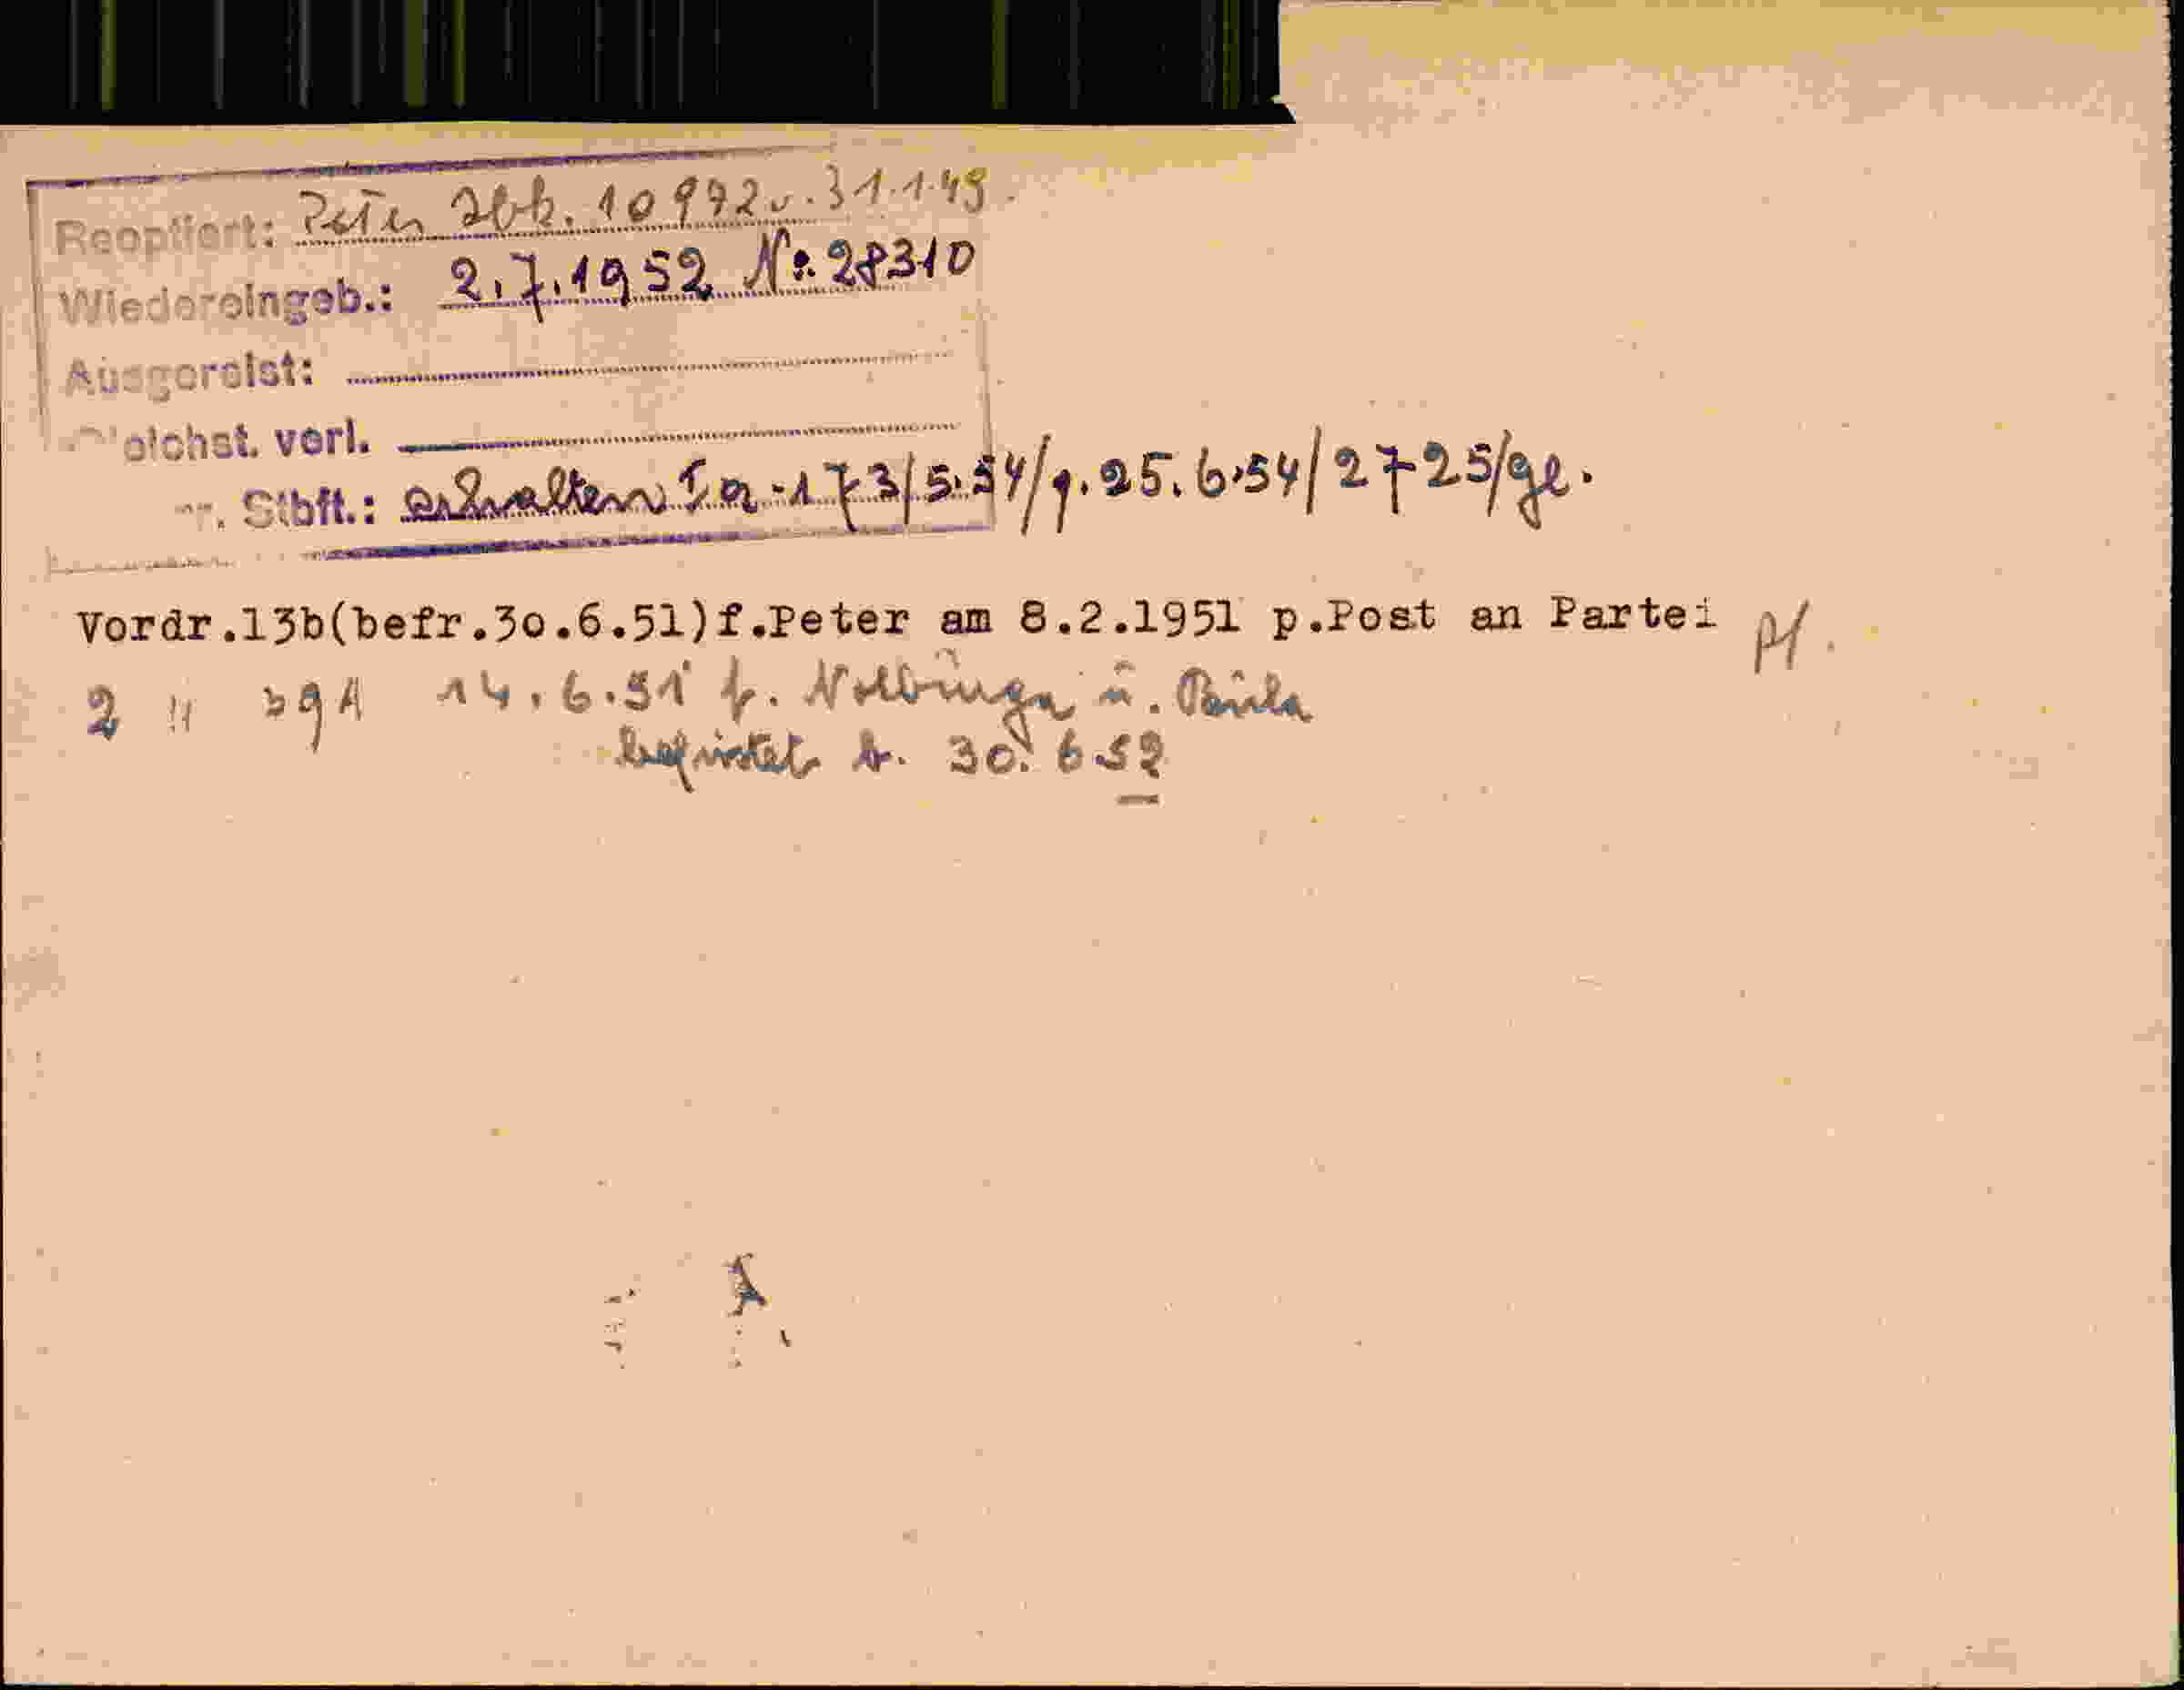 Reoptiert: Peter Abk. 10992 v. 31.1.49.
Wiedereingeb.: 2.7.1952 No. 28310
Ausgereist:
eichst. verl.
r. Stbft.: erhalten Ia-173/5.54/g.25.6.54/2725/ge.
Vordr.13b(befr.30.6.51)f.Peter am 8.2.1951 p.Post an Partei
2 " 14.6.51 f. u. Paula
befristet b. 30.6.52